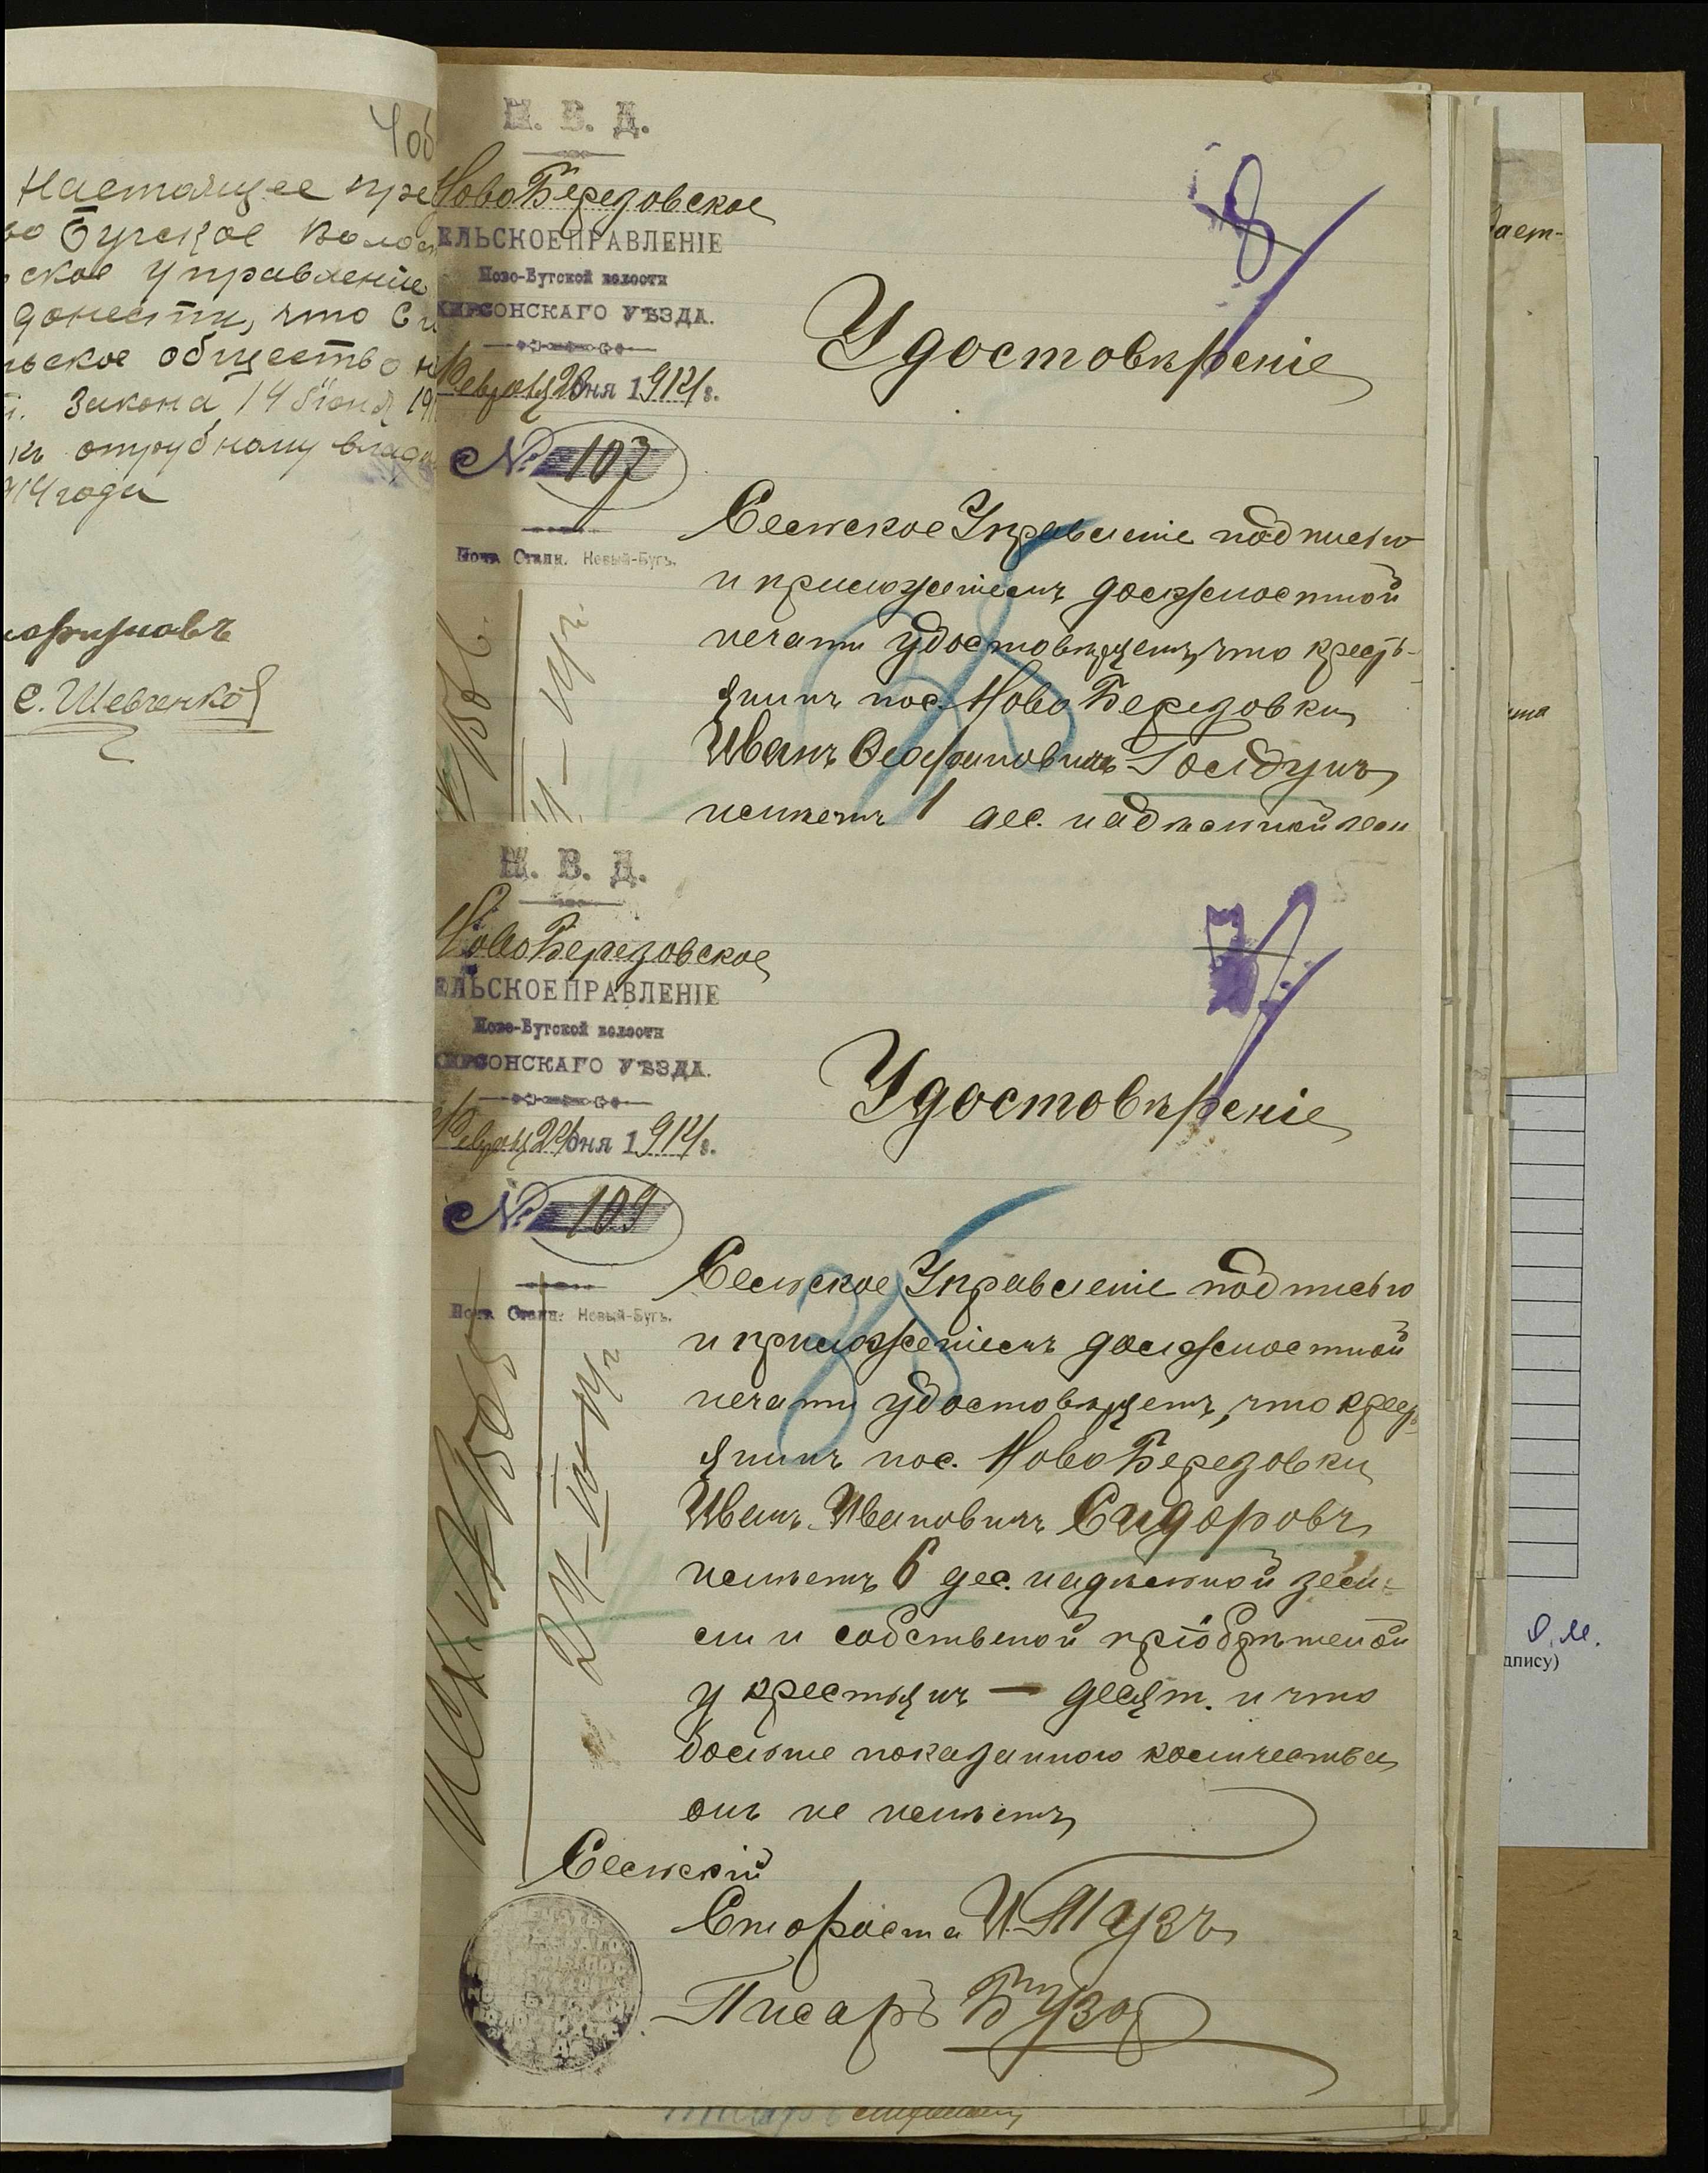 406
Настоящее пре
во Бугское Воло
ское управленіе
донести, что С
льское общество н
Закона 14 Іюня 19
къ отрубному влад
914 года
С. Шевченко
М. В. Д.
НовоБерезовское
ЕЛЬСКОЕ ПРАВЛЕНІЕ
Ново-Бугской волости
ХЕРСОНСКАГО УѢЗДА.
Февраля 28 дня 1914 г.
№ 107
Почт. Станц. Новый-Бугъ.
Удостовѣреніе
Сельское Управленіе подписью
и приложеніемъ должностной
печати удостовѣряетъ, что кресть-
янинъ пос. Ново Березовки
Иванъ Голдунъ
имѣетъ 1 дес. надѣльной зем
М. В. Д.
НовоБерезовское
ЕЛЬСКОЕ ПРАВЛЕНІЕ
Ново-Бугской волости
ХЕРСОНСКАГО УѢЗДА.
Февраля 24 дня 1914 г.
№ 109
Почт. Станц. Новый-Бугъ.
Удостовѣреніе
35
Сельское Управленіе подписью
и приложеніемъ должностной
печати удостовѣряетъ, что крест
янинъ пос. Ново Березовки
Иванъ Ивановичъ Сидоровъ
имѣетъ 6 дес. надѣльной зем-
ли и собственой пріобрѣтеной
у крестьянъ — десят. и что
больше показанного количества
онъ не имѣетъ
Сельскій
Староста И. Тузъ
Писаръ Бузо
дает-
дпису)